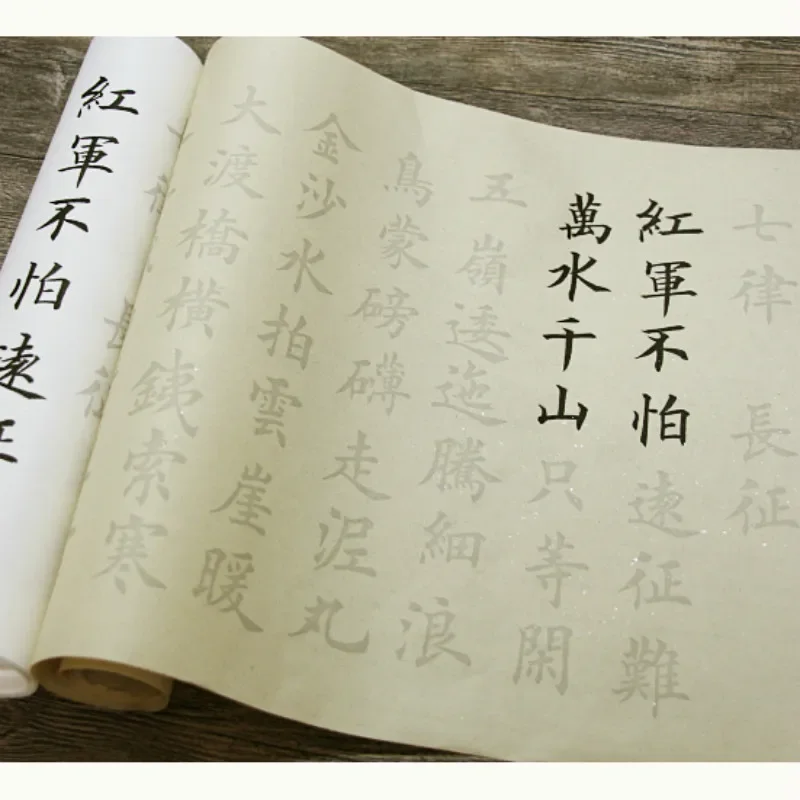 七律 長征
紅軍不怕遠征難
萬水千山只等閑
五嶺逶迤騰細浪
鳥蒙磅礴走泥丸
金沙水拍雲崖暖
大渡橋橫銕索寒
紅軍不怕遠